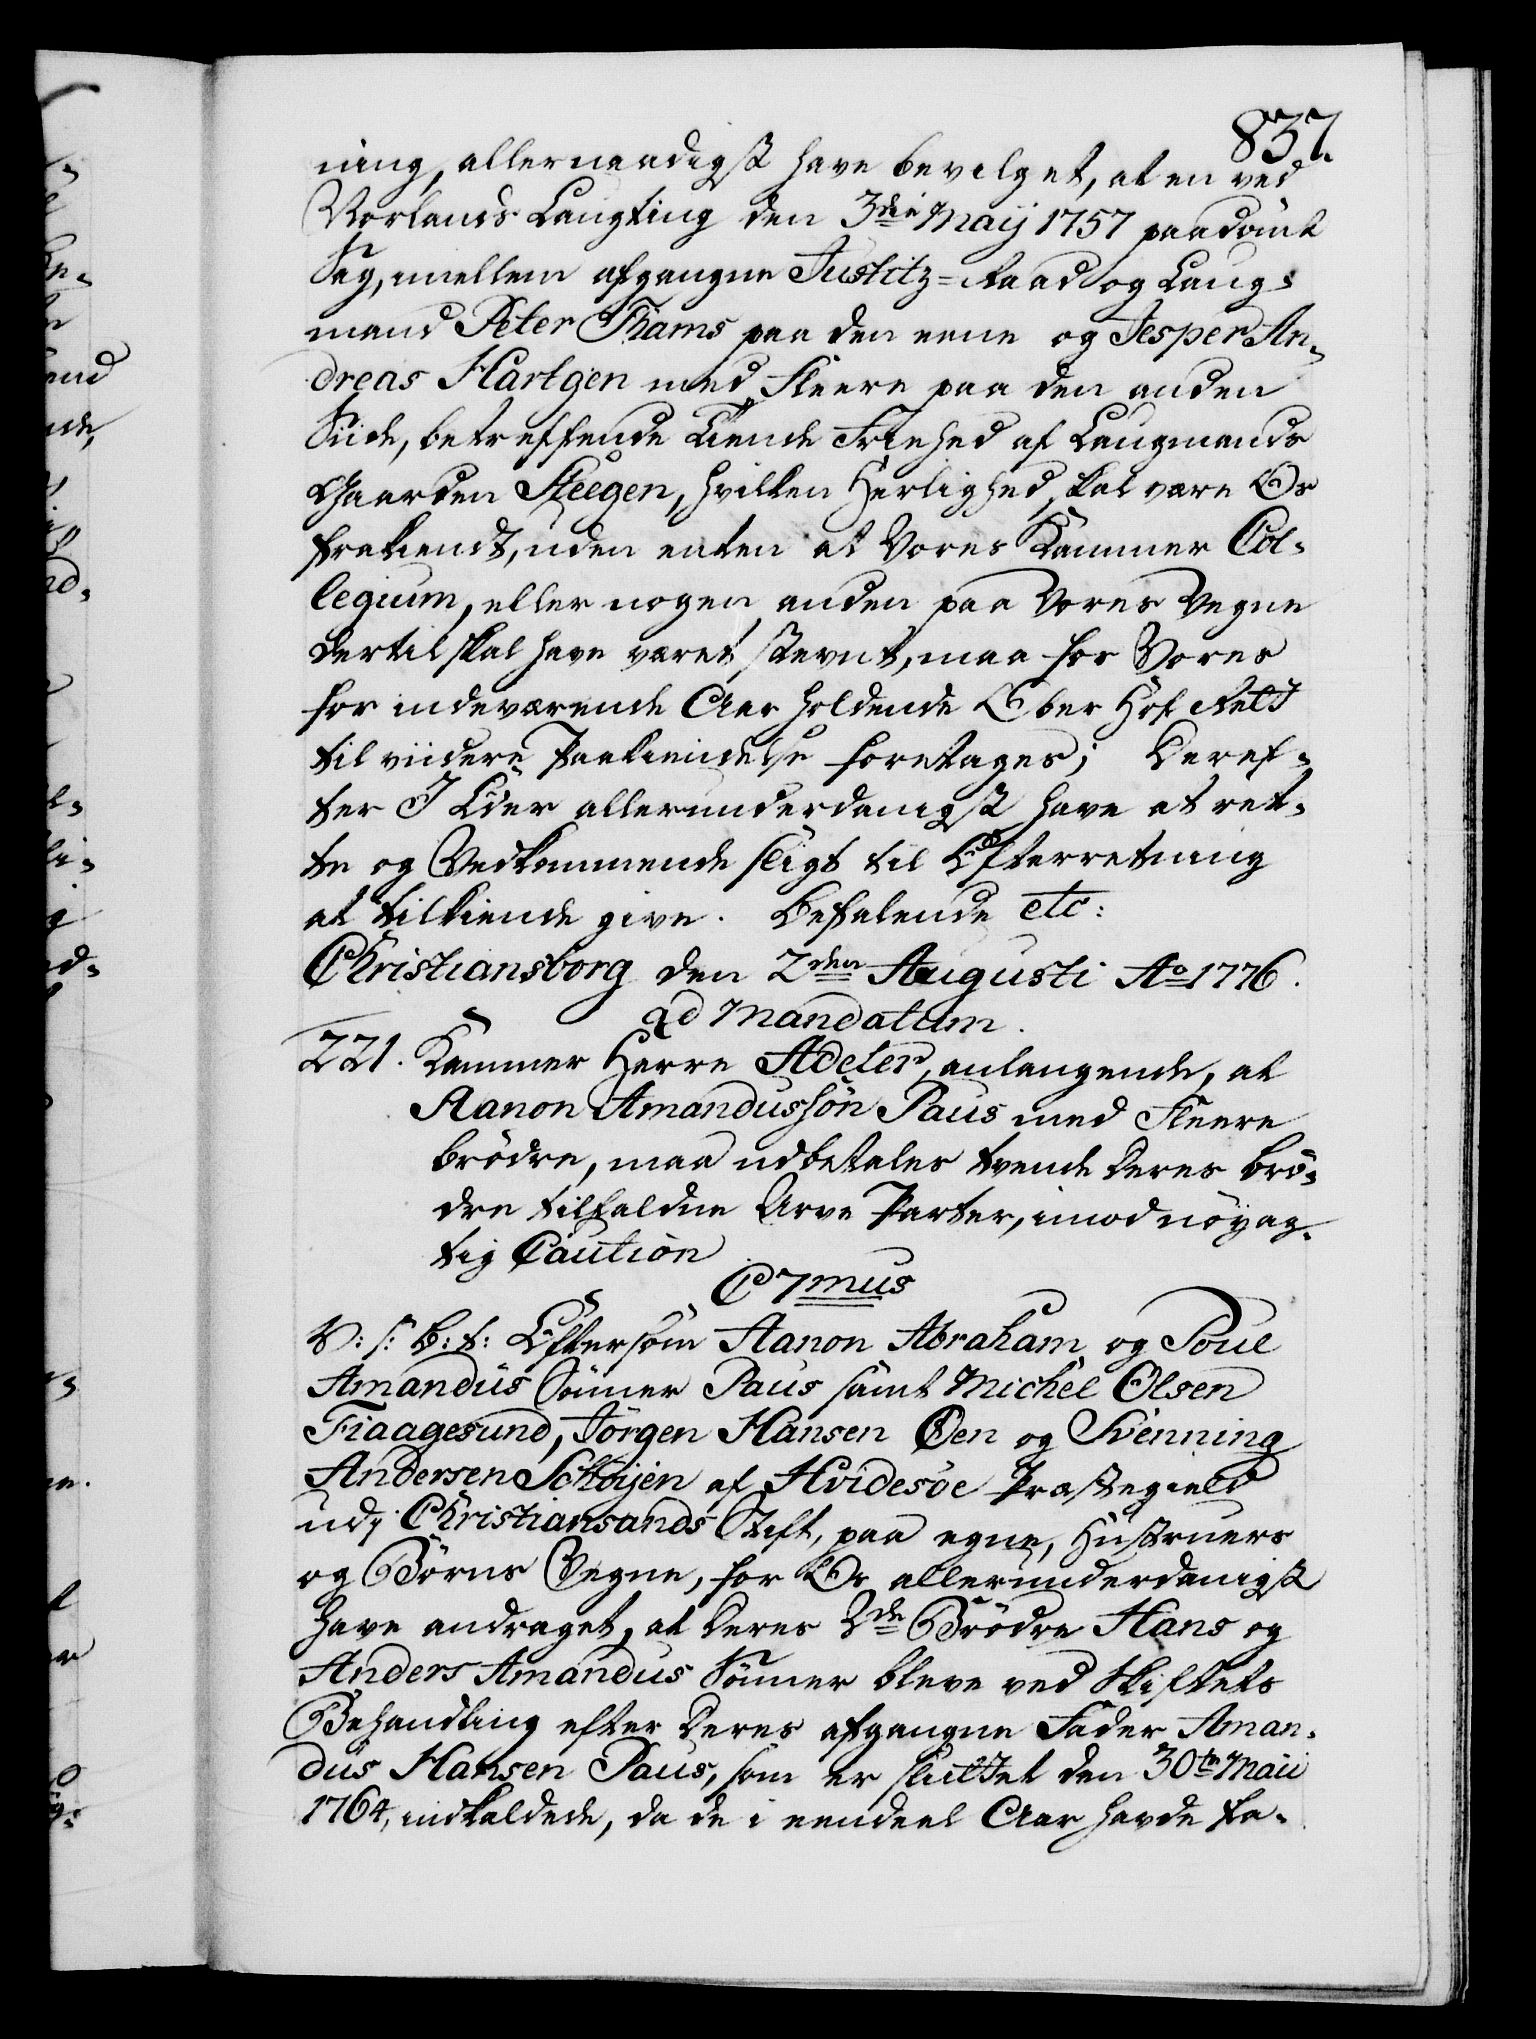 837.
ning, allernaadigst have bevilget, at en ved
Norlands Laugting den 3die Maij 1757 paadömt
Sag, imellem afgangne Justitz-Raad og Laug-
mand Peter Thams paa den eene og Jesper An-
dreas Hartgen med Fleere paa den anden
Siide, betreffende Tiende Friehed af Laugmands
Gaarden Steegen, hvilken Herlighed skal være Os
frakiendt, uden enten at Vores Kammer Col-
legium, eller nogen anden paa Vores Vegne
dertil skal have været stevnt, maa for Vores
for indeværende Aar holdende Ober Hof Rett
til viidere Paakiendelse foretages; Deref-
ter I Eder allerunderdanigst have at ret-
te og Vedkommende sligt til Efterretning
at tilkiende give. Befalende etc:
Christiansborg den 2den Augusti Ao 1776.
Ad Mandatum.
221. Kammer Herre Adeler, anlangende, at
Aanon Amandussön Paus med Fleere
Brödre, maa udbetales tvende deres Brö-
dre tilfaldne Arve Parter, imod nöyag-
tig Caution
C 7mus
V: s: B: t: Eftersom Aanon Abraham og Poul
Amandus Sönner Paus samt Michel Olsen
Fiaagesund, Jörgen Hansen Öen og Svenning
Andersen Schöijen af Hvidesöe Præstegield
udj Christiansands Stift, paa egne, Hustruers
og Börns Vegne, for Os allerunderdanigst
have andraget, at deres 2de Brödre Hans og
Anders Amandus Sönner bleve ved Skiftets
Behandling efter deres afgangne Fader Aman-
dus Hansen Paus, som er sluttet den 30te Maii
1764, indkaldede, da de i eendeel Aar havde fa-